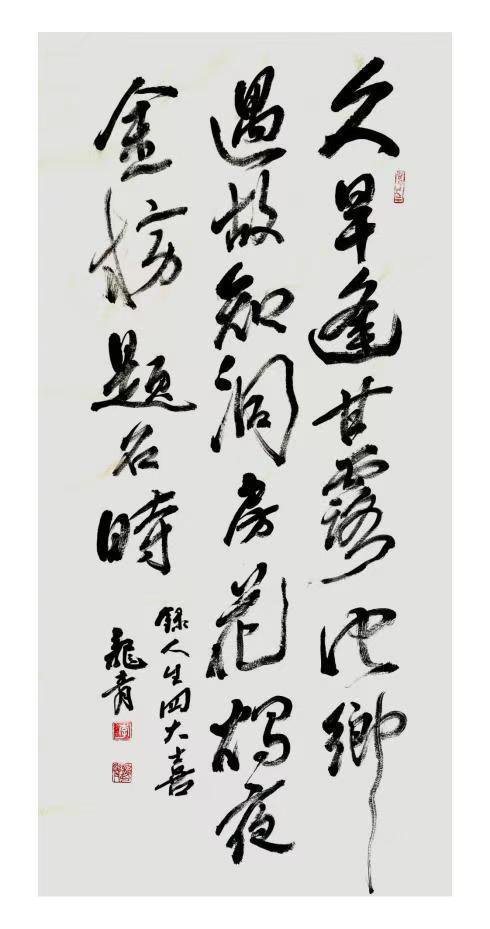 久旱逢甘露他鄉
遇故知洞房花燭夜
金榜題名時
錄人生四大喜
龍青